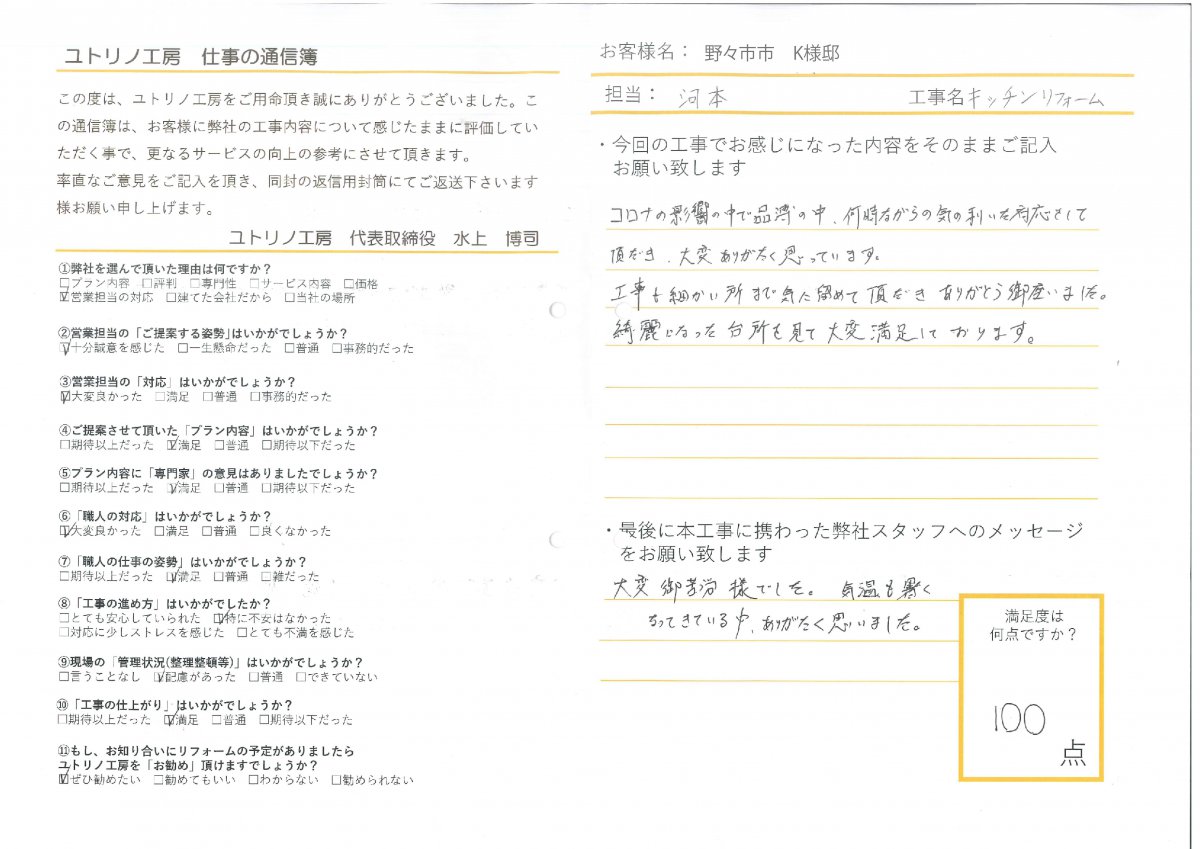 ユトリノ工房 仕事の通信簿
この度は、ユトリノ工房をご用命頂き誠にありがとうございました。こ
の通信簿は、お客様に弊社の工事内容について感じたままに評価してい
ただく事で、更なるサービスの向上の参考にさせて頂きます。
率直なご意見をご記入を頂き、同封の返信用封筒にてご返送下さいます
様お願い申し上げます。
ユトリノ工房 代表取締役 水上 博司
①弊社を選んで頂いた理由は何ですか?
□プラン内容 □評判 □専門性 □サービス内容 □価格
☑営業担当の対応 □建てた会社だから □当社の場所
②営業担当の「ご提案する姿勢」はいかがでしょうか?
☑十分誠意を感じた □一生懸命だった □普通 □事務的だった
③営業担当の「対応」はいかがでしょうか?
☑大変良かった □満足 □普通 □事務的だった
④ご提案させて頂いた「プラン内容」はいかがでしょうか?
□期待以上だった ☑満足 □普通 □期待以下だった
⑤プラン内容に「専門家」の意見はありましたでしょうか?
□期待以上だった ☑満足 □普通 □期待以下だった
⑥「職人の対応」はいかがでしょうか?
☑大変良かった □満足 □普通 □良くなかった
⑦「職人の仕事の姿勢」はいかがでしょうか?
□期待以上だった ☑満足 □普通 □雑だった
⑧「工事の進め方」はいかがでしたか?
□とても安心していられた ☑特に不安はなかった
□対応に少しストレスを感じた □とても不満を感じた
⑨現場の「管理状況(整理整頓等)」はいかがでしょうか?
□言うことなし ☑配慮があった □普通 □できていない
⑩「工事の仕上がり」はいかがでしょうか?
□期待以上だった ☑満足 □普通 □期待以下だった
⑪もし、お知り合いにリフォームの予定がありましたら
ユトリノ工房を「お勧め」頂けますでしょうか?
☑ぜひ勧めたい □勧めてもいい □わからない □勧められない
お客様名: 野々市市 K様邸
担当: 河本 工事名キッチンリフォーム
・今回の工事でお感じになった内容をそのままご記入
お願い致します
コロナの影響の中で品薄の中、何時ながらの気の利いた対応をして
頂だき、大変ありがたく思っています。
工事も細かい所まで気に留めて頂だき ありがとう御座いました。
綺麗になった台所を見て大変満足して おります。
・最後に本工事に携わった弊社スタッフへのメッセージ
をお願い致します
大変 御苦労 様でした。 気温も暑く
なってきている中、ありがたく思いました。
満足度は
何点ですか?
100
点